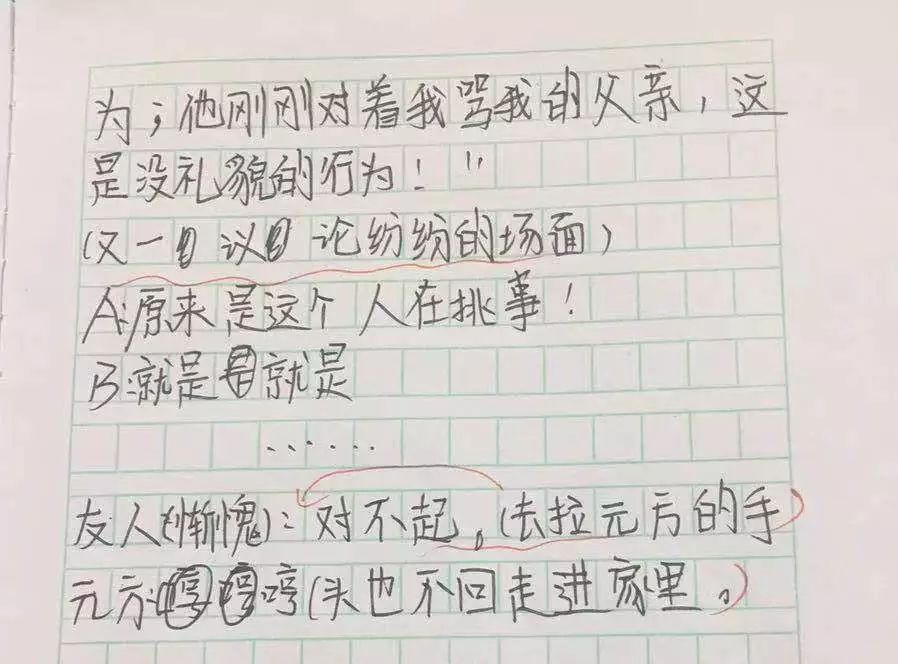 为；他刚刚对着我骂我的父亲，这
是没礼貌的行为！"
(又一议论纷纷的场面)
A:原来是这个人在挑事！
B:就是就是
······
友人(惭愧)：对不起。(去拉元方的手)
元方:哼(头也不回走进家里。)